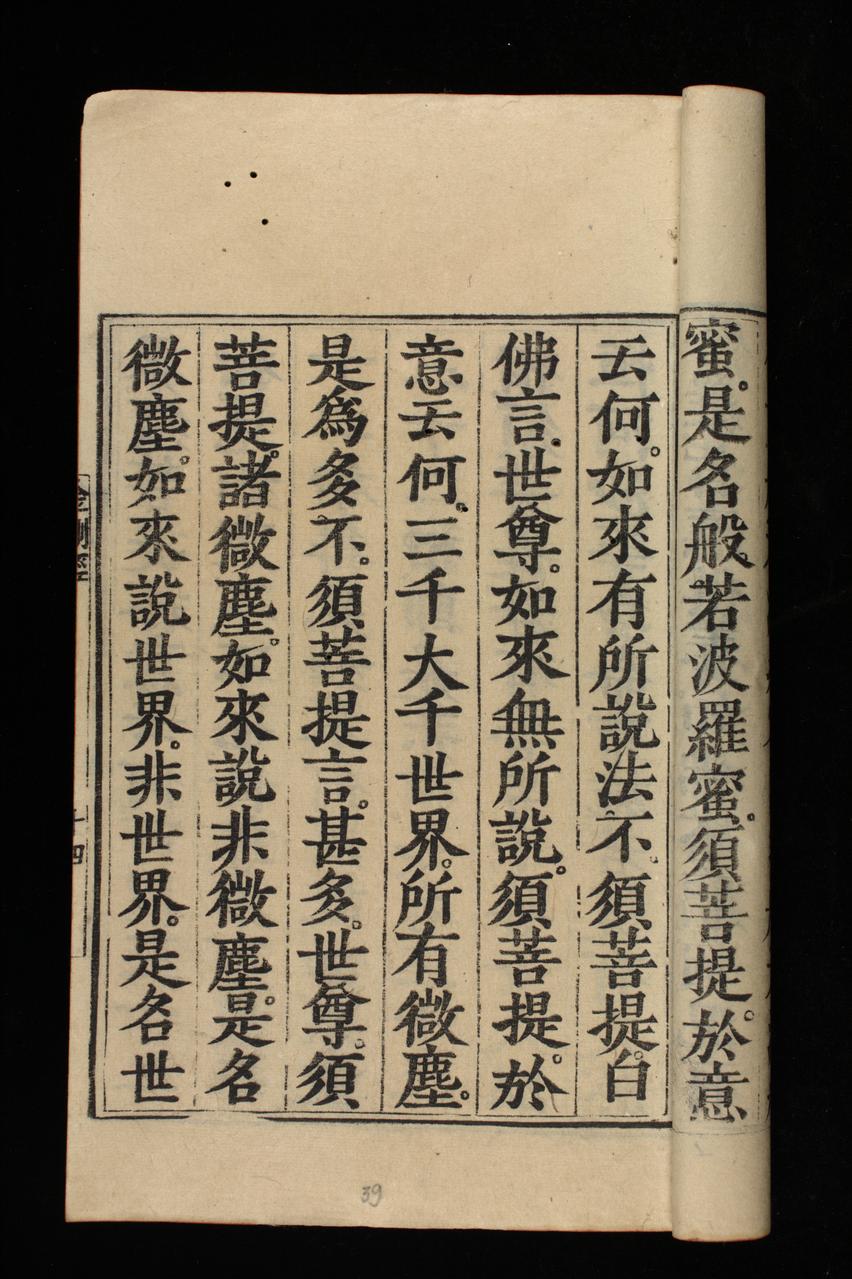 蜜。是名般若波羅蜜。須菩提。於意
云何。如來有所說法不。須菩提白
佛言。世尊。如來無所說。須菩提。於
意云何。三千大千世界。所有微塵。
是為多不。須菩提言。甚多。世尊。須
菩提。諸微塵。如來說非微塵。是名
微塵。如來說世界。非世界。是名世
金剛經
十四
39